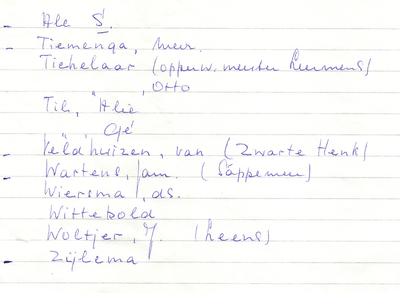 - Ale S.
- Tiemenga, meer.
Tichelaar (opperw. meester Leermens)
" , Otto
Til, Alie
" Gé
- Veldhuizen, van (Zwarte Henk)
- Wartens, fam. (Sappemeer)
Wiersma, ds.
Wittebold
Woltjer, J. (Leens)
- Zijlema